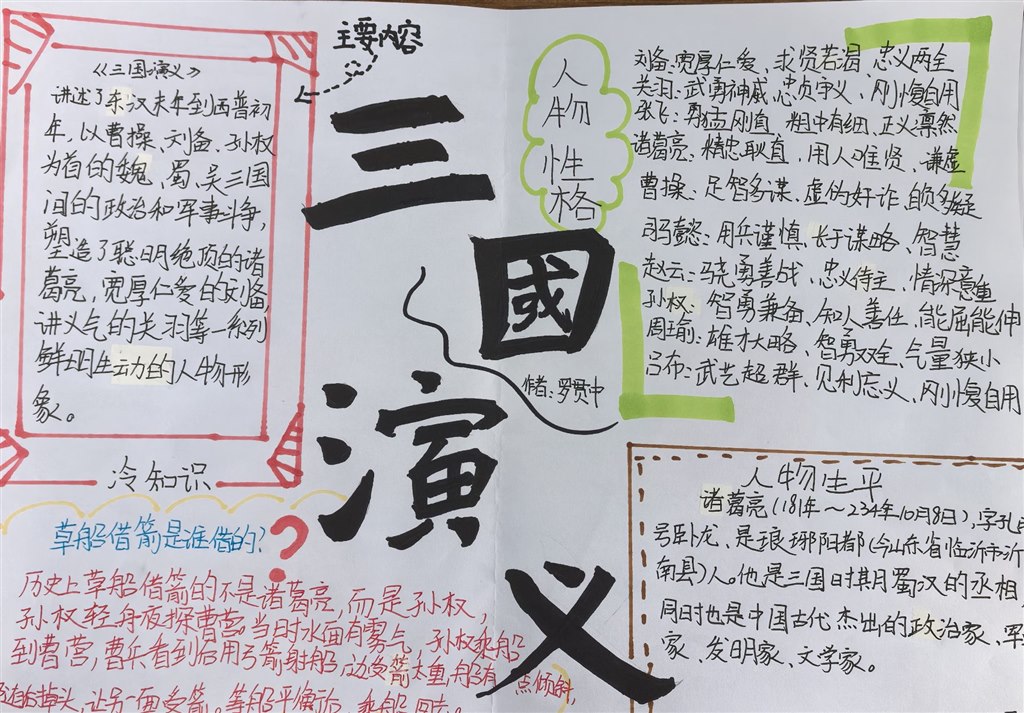 主要内容
《三国演义》
讲述了东汉末年到西晋初
年，以曹操、刘备、孙权
为首的魏、蜀、吴三国
间的政治和军事斗争，
塑造了聪明绝顶的诸
葛亮，宽厚仁爱的刘备，
讲义气的关羽等一系列
鲜明生动的人物形
象。
三
國
演
义
作者：罗贯中
人
物
性
格
刘备：宽厚仁爱、求贤若渴、忠义两全
关羽：武勇神威、忠贞守义、刚愎自用
张飞：勇猛刚直、粗中有细、正义凛然
诸葛亮：精忠耿直、用人唯贤、谦虚
曹操：足智多谋、虚伪奸诈、自负多疑
司马懿：用兵谨慎、长于谋略、智慧
赵云：骁勇善战、忠义侍主、情深意重
孙权：智勇兼备、知人善任、能屈能伸
周瑜：雄才大略、智勇双全、气量狭小
吕布：武艺超群、见利忘义、刚愎自用
冷知识
草船借箭是谁借的？
历史上草船借箭的不是诸葛亮，而是孙权，
孙权轻舟夜探曹营。当时水面有雾气，孙权乘船
到曹营，曹兵看到后用弓箭射船，边受箭太重，船有一点倾斜，
掉头，让另一面受箭。等船平衡后，乘船回去。
人物生平
诸葛亮（181年～234年10月8日），字孔
号卧龙、是琅琊阳都（今山东省临沂市沂
南县）人。他是三国时期蜀汉的丞相，
同时也是中国古代杰出的政治家、军
家、发明家、文学家。